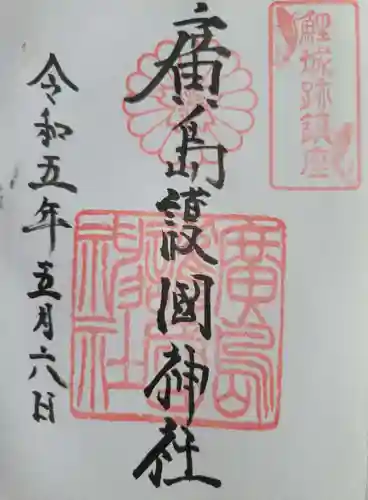 鯉城跡鎮座
廣島護國神社
廣島護國神社
令和五年五月六日